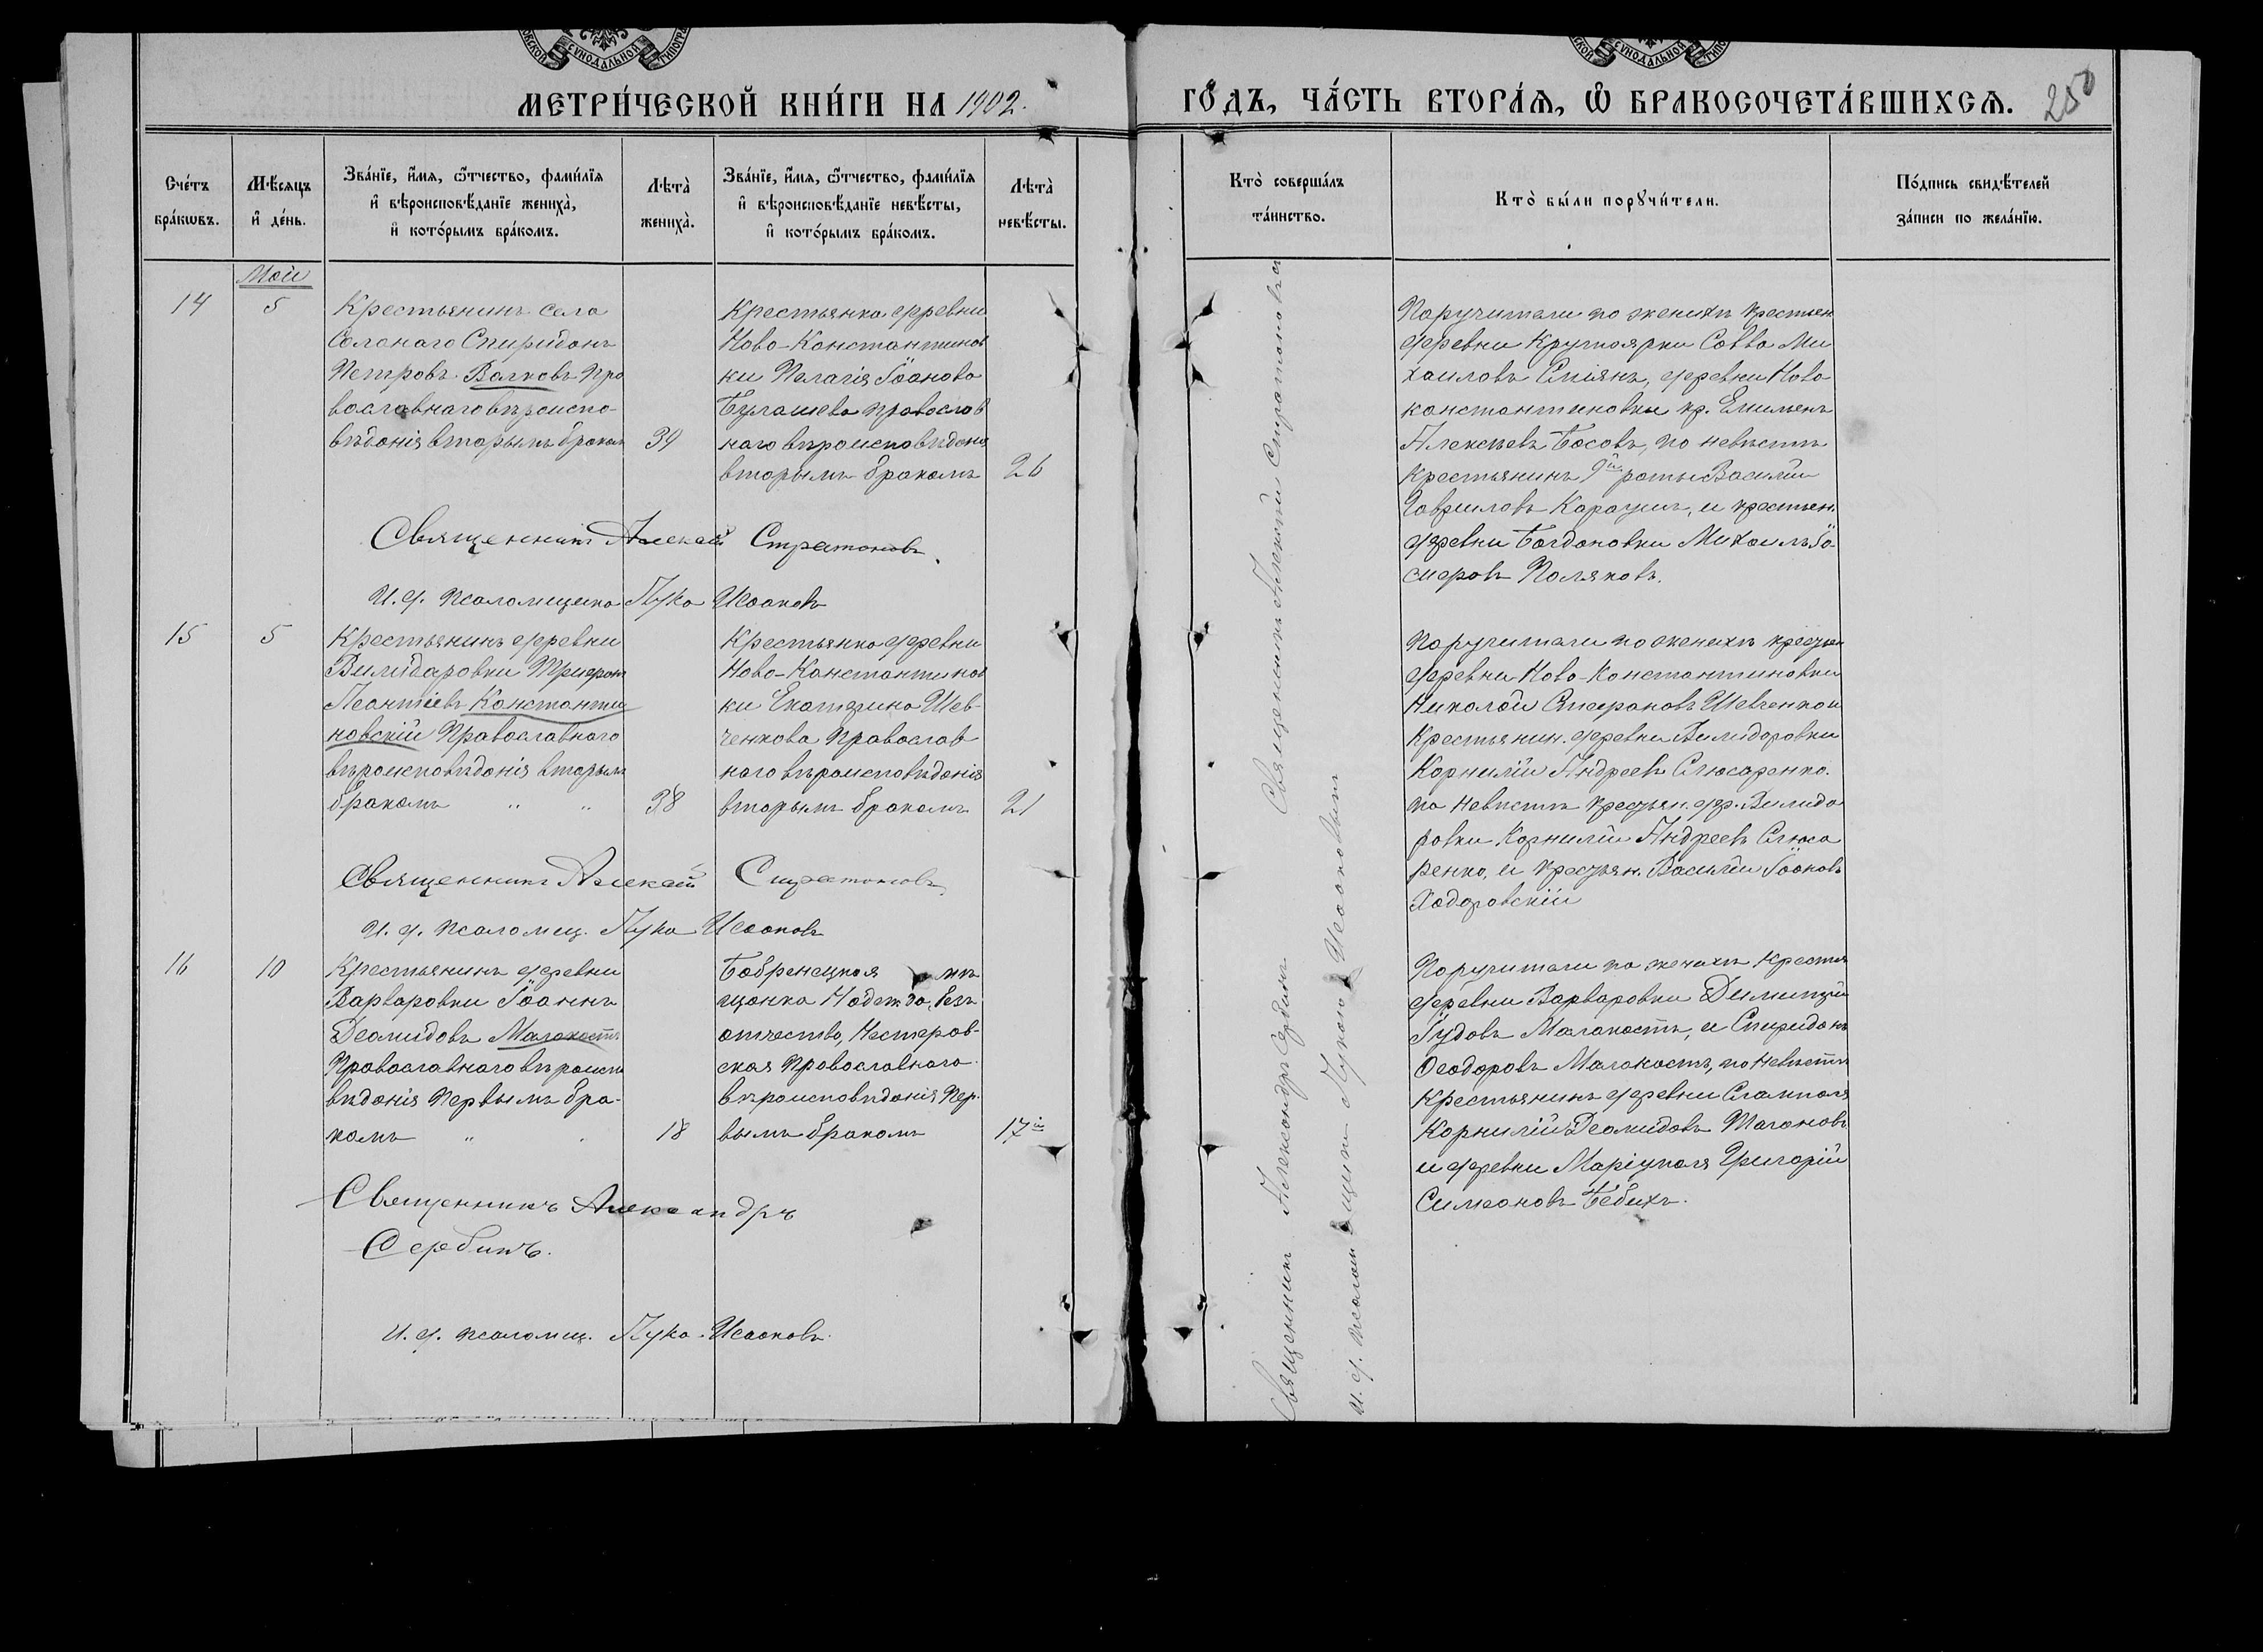 МЕТРИ́ЧЕСКОЙ КНИ́ГИ НА 1902.
ГОДЪ, ЧА́СТЬ ВТОРА́Я, Ѿ БРАКОСОЧЕТА́ВШИХСѦ.
250
Сче́тъ бра́кѡвъ.
Мѣ́сяцъ и҆ де́нь.
Зва́нїе, и҆́мя, ѻ҆́тчество, фами́лїя и҆ вѣроисповѣ́данїе жениха̀, и҆ кото́рымъ бра́комъ.
Лѣта̀ жениха̀.
Зва́нїе, и҆́мя, ѻ҆́тчество, фами́лїя и҆ вѣроисповѣ́данїе невѣ́сты, и҆ кото́рымъ бра́комъ.
Лѣта̀ невѣ́сты.
Кто̀ соверша́лъ та́инство.
Кто̀ бы́ли порꙋчи́тели.
По́дпись свидѣ́телей за́писи по жела́нїю.
Май
14
5
Крестьянинъ села
Соленаго Спиридонъ
Петровъ Волковъ Пра
вославнаго вѣроиспо-
вѣданія вторымъ бракомъ
34
Крестьянка деревни
Ново-Константинов
ки Пелагія Іоанова
Бугашева православ
наго вѣроисповѣданія
вторымъ бракомъ
26
Поручители по женихѣ крестьян
деревни Кругноярки Савва Ми
хаиловъ Сміянъ, деревни Ново
константиновки кр. Емильянъ
Алексѣевъ Босовъ, по невѣстѣ
Крестьянинъ 9й роты Василій
Гавриловъ Карауш, и крестьян.
деревни Богдановки Михаилъ Іо-
сифовъ Поляковъ.
Священникъ Алексѣй Стратоновъ.
И. д. псаломщика Лука Исааковъ
15
5
Крестьянинъ деревни
Вилидаровки Трифонъ
Леонтіевъ Константи
новскій Православнаго
вѣроисповѣданія вторымъ
бракомъ " "
38
Крестьянка деревни
Ново-Константинов
ки Екатерина Шев-
ченкова Православ
наго вѣроисповѣданія
вторымъ бракомъ
21
Поручители по женихѣ кресьян
деревни Ново-Константиновки
Николай Стефановъ Шевченко и
Крестьянин. деревни Вилидоровки
Корнилій Андреевъ Слюсаренко.
по невѣстѣ кресьян. дер. Вилидо
ровки Корнилій Андреевъ Слюса
ренко, и кресьян. Василій Іоановъ
Ходоровскій
Священникъ Алексѣй Стратоновъ
И. д. псаломщ. Лука Исааковъ
16
10
Крестьянинъ деревни
Варваровки Іоаннъ
Деомидовъ Малокость
Православнаго вѣроиспо
вѣданія первымъ бра-
комъ "
18
Бобренецкая мѣ
щанка Надежда, безъ
отчества, Нестеров-
ская Православнаго
вѣроисповѣданія Пер-
вымъ бракомъ
17й
Поручители по женихѣ крестья
деревни Варваровки Димитрій
Іудовъ Малокость, и Спиридонъ
Феодоровъ Малокость, по невѣстѣ
Крестьянинъ деревни Слатполя
Корнилій Деомидовъ Тагановъ
и деревни Маріуполя Григорій
Симеоновъ Бебихъ.
Священникъ Александръ
Сербинъ.
И. д. псаломщ. Лука Исааковъ.
Священникъ Александръ Сербинъ Священникъ Алексій Стратоновъ
И. д. Псаломщикъ Лукою Исааковымъ